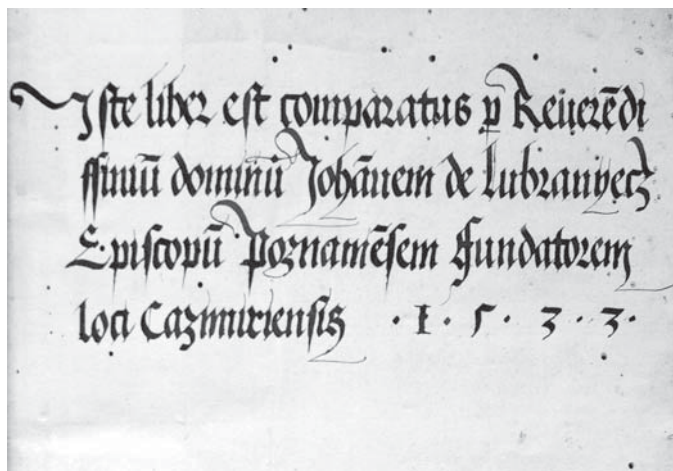 Iste liber est comparatus p̲ Reuerēdi
ssimū dominū Johānem de Lubranyecz
Episcopū Poznaniēsem Fundatorem
loci Cazimiriensis · 1 · 5 · 3 · 3 ·